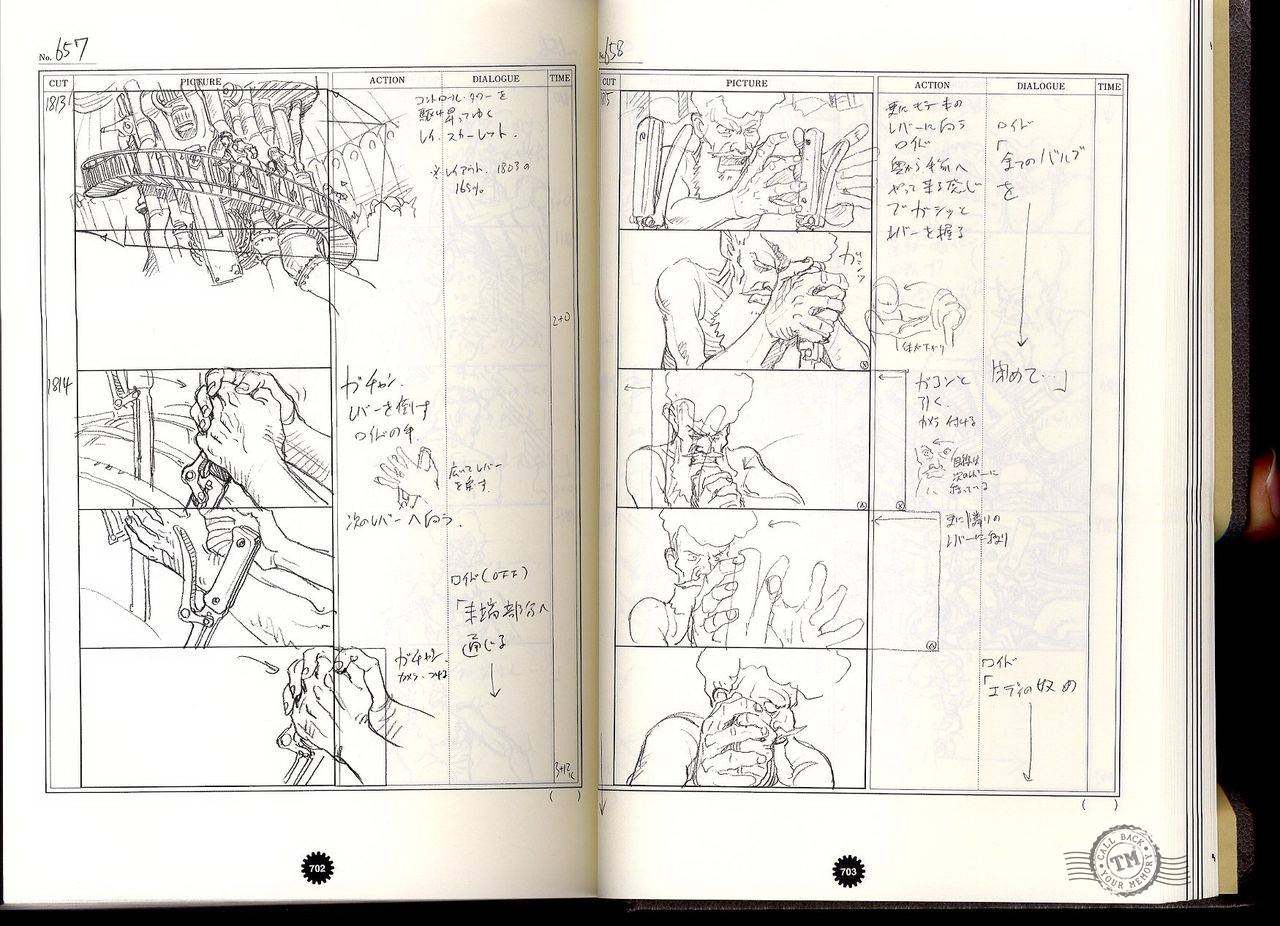 No. 657
CUT
PICTURE
ACTION
DIALOGUE
TIME
1813
コントロール・タワーを
駆け昇ってゆく
レイ、スカーレット.
※レイアウト. 1803の
165%
2+0
1814
ガチャン.
レバーを倒す
ロイドの手.
広いてレバー
を戻す.
次のレバーへ向う.
ロイド(OFF)
「末端部分へ
通じる
ガチャン.
カメラ・つける
3+12
( )
702
No. 658
CUT
PICTURE
ACTION
DIALOGUE
TIME
更に
レバーに向う
ロイド
奥から手前へ
やって来る感じ
でガシッと
レバーを握る
ロイド
「全てのバルブ
を
体が下がり
閉めて…」
ガコンと
引く.
カメラ付ける
目線は
次のレバーに
移っている
更に隣りの
レバーに移り
ロイド
「エディの奴め
( )
703
CALL BACK
TM
YOUR MEMORY